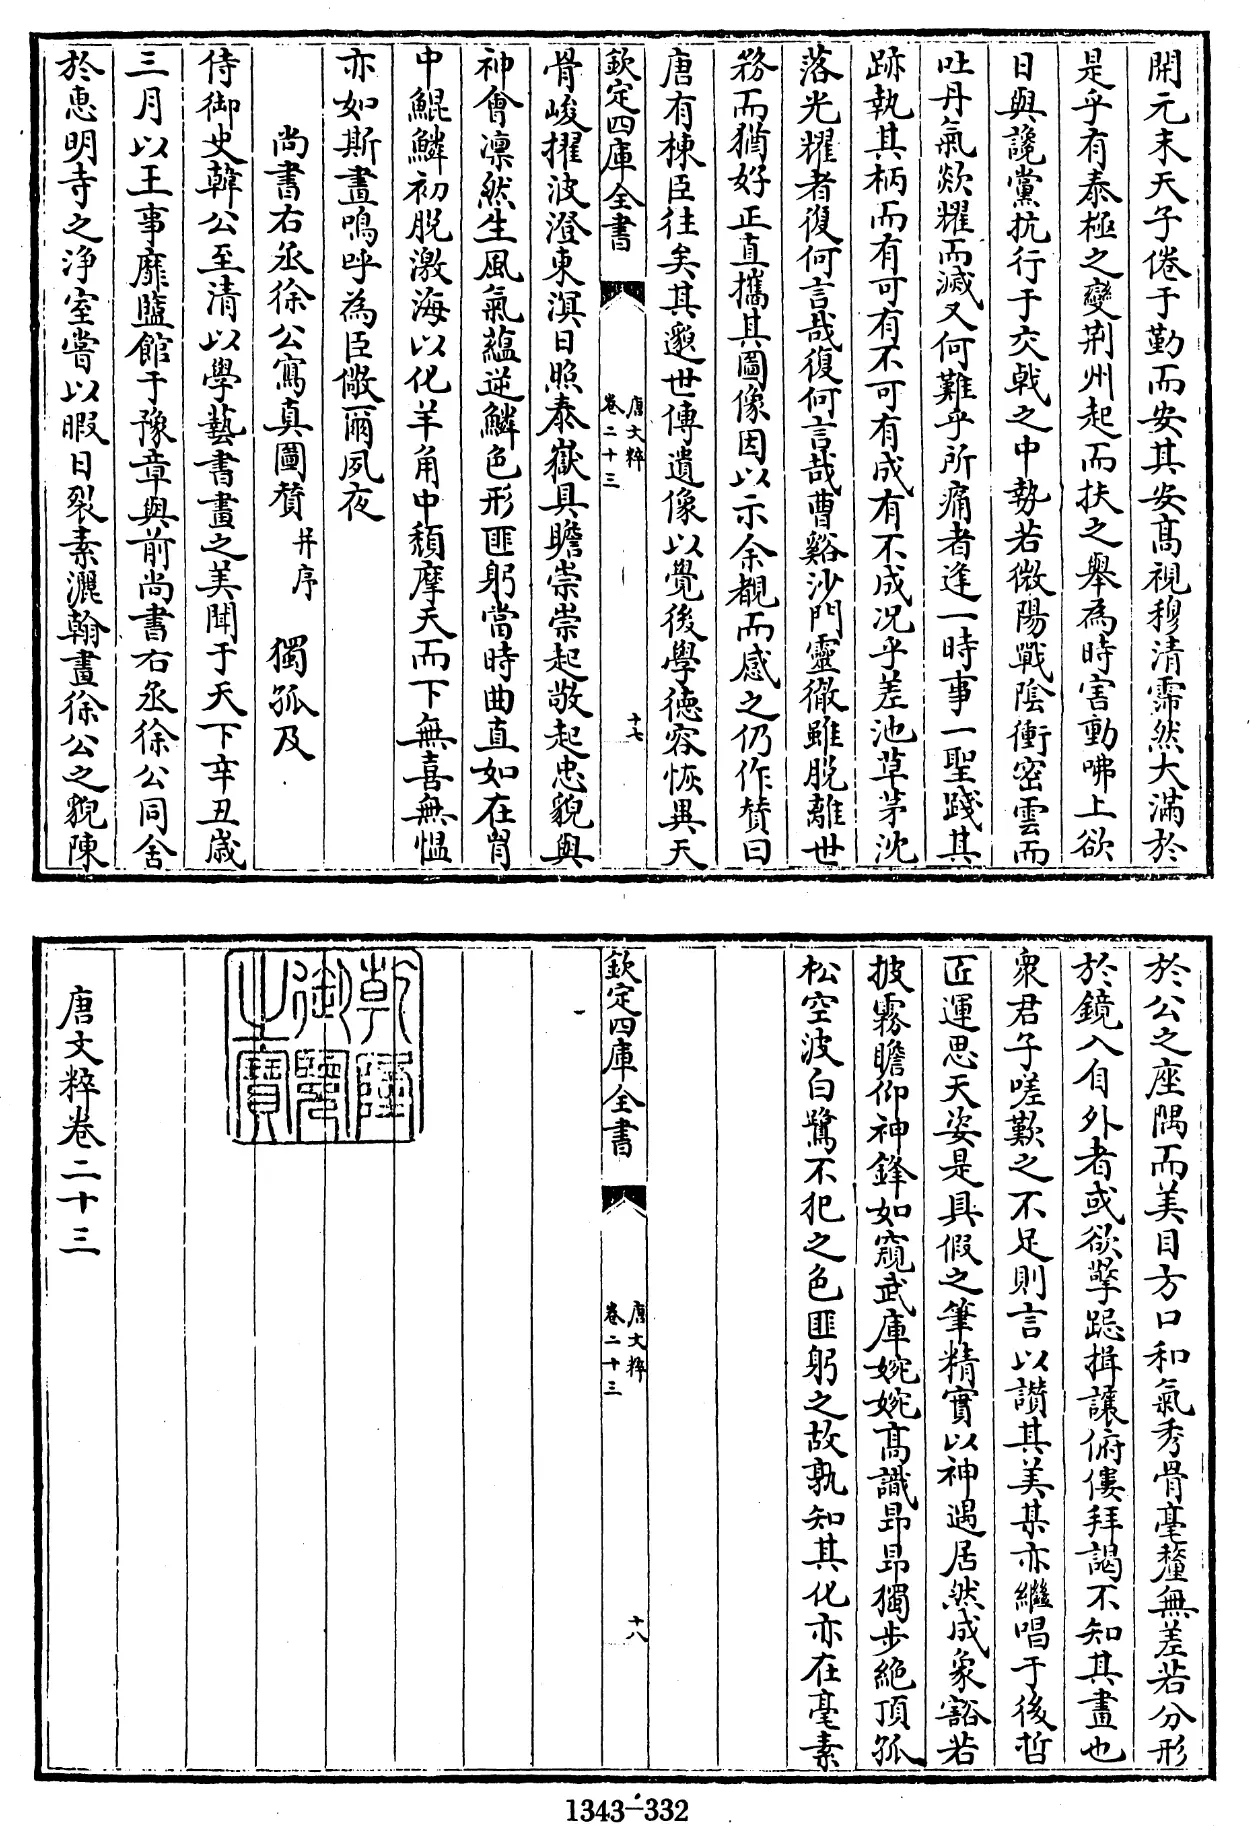 開元末天子倦于勤而安其安高視穆清霈然大滿於
是乎有泰極之變荆州起而扶之舉為時害動咈上欲
日與讒黨抗行于交戟之中勢若微陽戰陰衝密雲而
吐丹氣歘耀而滅又何難乎所痛者逢一時事一聖踐其
跡執其柄而有可有不可有成有不成况乎差池草茅沈
落光耀者復何言哉復何言哉曹谿沙門靈徹雖脱離世
務而猶好正直攜其圖像因以示余覩而感之仍作賛曰
唐有棟臣往矣其邈世傳遺像以覺後學德容恢異天
欽定四庫全書
唐文粹
卷二十三
十七
骨峻擢波澄東溟日照泰嶽具瞻崇崇起敬起忠貌與
神會凛然生風氣藴逆鱗色形匪躬當時曲直如在胷
中鯤鱗初脱激海以化羊角中頽摩天而下無喜無愠
亦如斯晝鳴呼為臣儆爾夙夜
尚書右丞徐公寫真圖賛 并序 獨孤及
侍御史韓公至清以學藝書畫之美聞于天下辛丑歳
三月以王事靡盬館于豫章與前尚書右丞徐公同舍
於惠明寺之浄室嘗以暇日裂素灑翰畫徐公之貌陳
於公之座隅而美目方口和氣秀骨毫釐無差若分形
於鏡入自外者或欲擎跽揖讓俯僂拜謁不知其畫也
衆君子嗟歎之不足則言以讃其美某亦繼唱于後哲
匠運思天姿是具假之筆精實以神遇居然成象豁若
披霧瞻仰神鋒如窺武庫婉婉高識昂昂獨步絶頂孤
松空波白鷺不犯之色匪躬之故孰知其化亦在毫素
欽定四庫全書
唐文粹
卷二十三
十八
乾隆
御覽
之寶
唐文粹卷二十三
1343-332